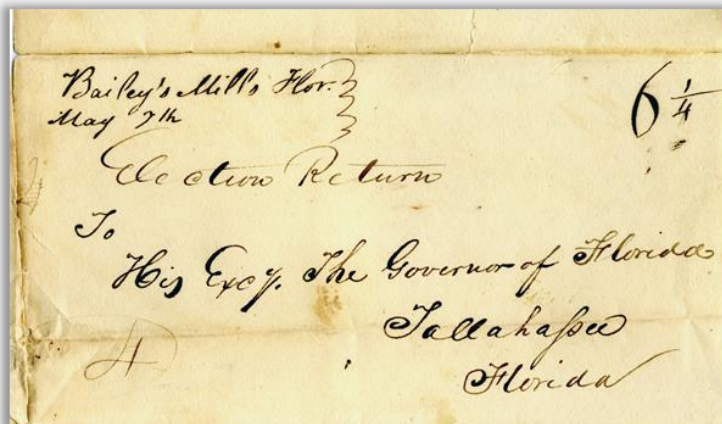 Bailey's Mills Flor.
6 1/4
May 7th
Election Return
To
His Excy. The Governor of Florida
Tallahaſsee
Florida